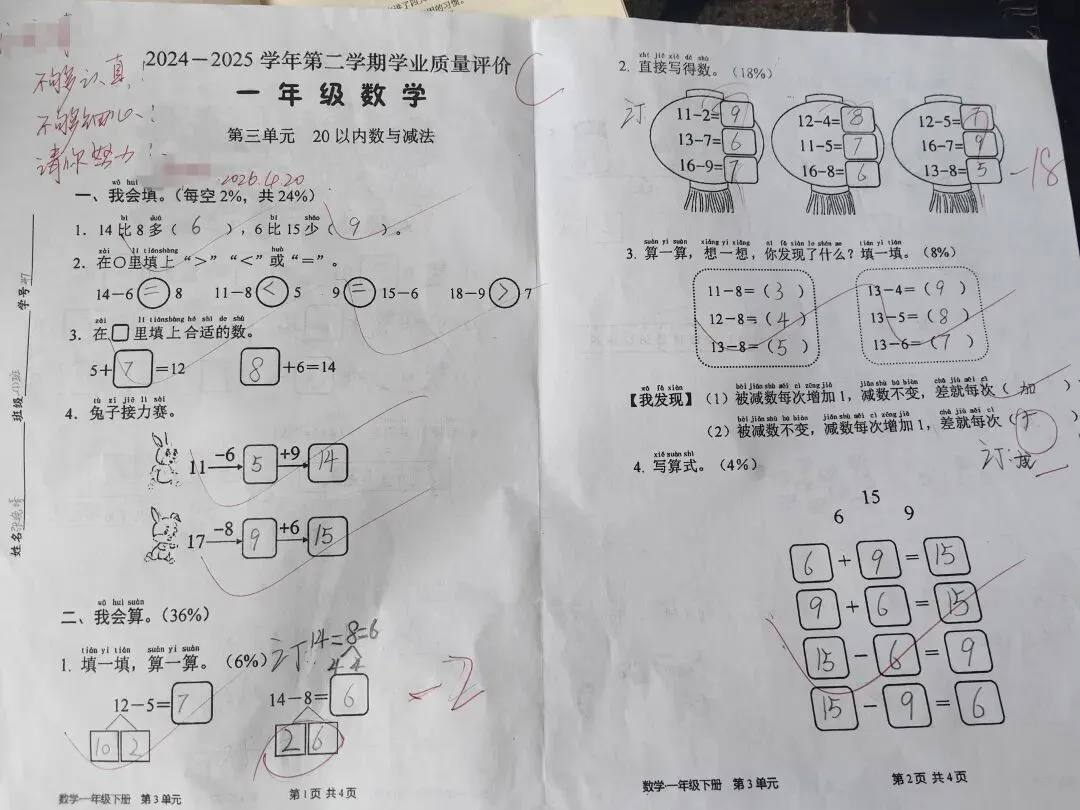 不够认真！
不够细心！
请你努力！
2026.4.20
C
2024－2025 学年第二学期学业质量评价
一年级数学
第三单元 20 以内数与减法
wǒ huì
一、我会填。（每空 2%，共 24%）
bǐ duō bǐ shǎo
1. 14 比 8 多（ 6 ），6 比 15 少（ 9 ）。
zài lǐ tián shàng huò
2. 在○里填上“>”“<”或“=”。
14－6 = 8 11－8 < 5 9 = 15－6 18－9 > 7
zài lǐ tián shàng hé shì de shù
3. 在□里填上合适的数。
5+ 7 =12 8 +6=14
tù zi jiē lì sài
4. 兔子接力赛。
11 －6 5 +9 14
17 －8 9 +6 15
wǒ huì suàn
二、我会算。（36%）
tián yì tián suàn yí suàn
1. 填一填，算一算。（6%）
订 14=8=6
4 4
12－5= 7 14－8= 6
10 2 2 6
－2
数学·一年级下册 第 3 单元 第 1 页 共 4 页
学号
班级
姓名
zhí jiē xiě dé shù
2. 直接写得数。（18%）
订
11－2= 9 12－4= 8 12－5= 7
13－7= 6 11－5= 7 16－7= 9
16－9= 7 16－8= 6 13－8= 5
－18
suàn yí suàn xiǎng yì xiǎng nǐ fā xiàn le shén me tián yì tián
3. 算一算，想一想，你发现了什么？填一填。（8%）
11－8=（ 3 ） 13－4=（ 9 ）
12－8=（ 4 ） 13－5=（ 8 ）
13－8=（ 5 ） 13－6=（ 7 ）
wǒ fā xiàn bèi jiǎn shù měi cì zēng jiā jiǎn shù bú biàn chā jiù měi cì
【我发现】（1）被减数每次增加 1，减数不变，差就每次（ 加 ）
bèi jiǎn shù bú biàn jiǎn shù měi cì zēng jiā chā jiù měi cì
（2）被减数不变，减数每次增加 1，差就每次（ ）
订：减
xiě suàn shì
4. 写算式。（4%）
15
6 9
6 + 9 = 15
9 + 6 = 15
15 － 6 = 9
15 － 9 = 6
数学·一年级下册 第 3 单元 第 2 页 共 4 页